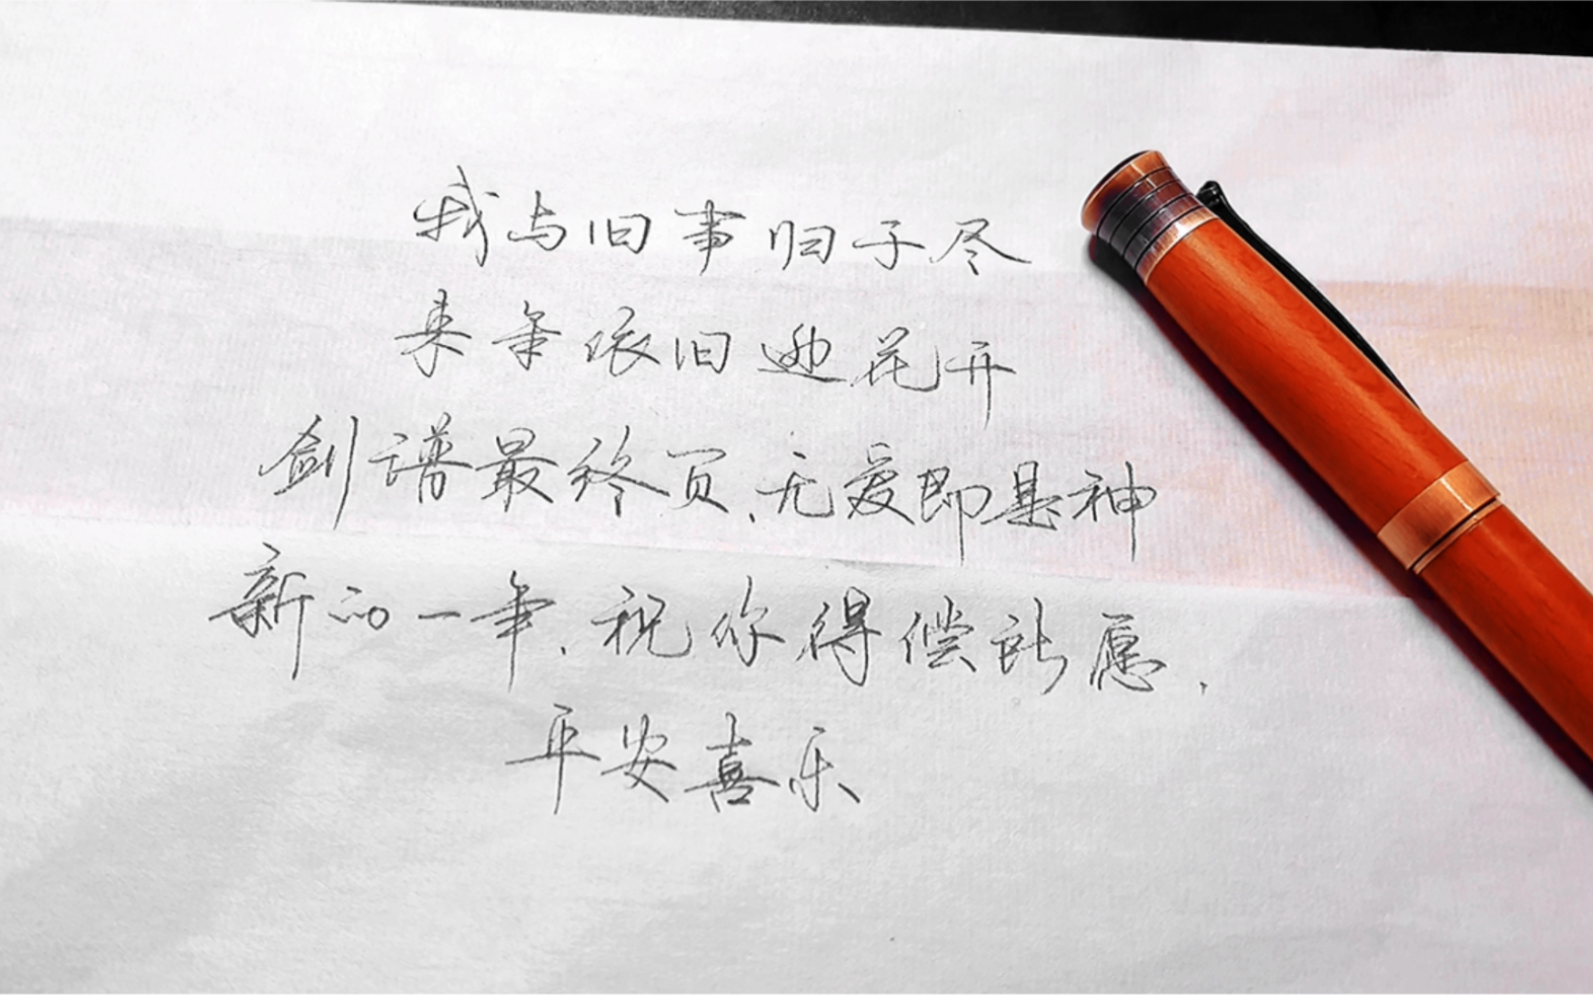 我与旧事归于尽
来年依旧迎花开
剑谱最终页、无爱即是神
新的一年、祝你得偿所愿、
平安喜乐